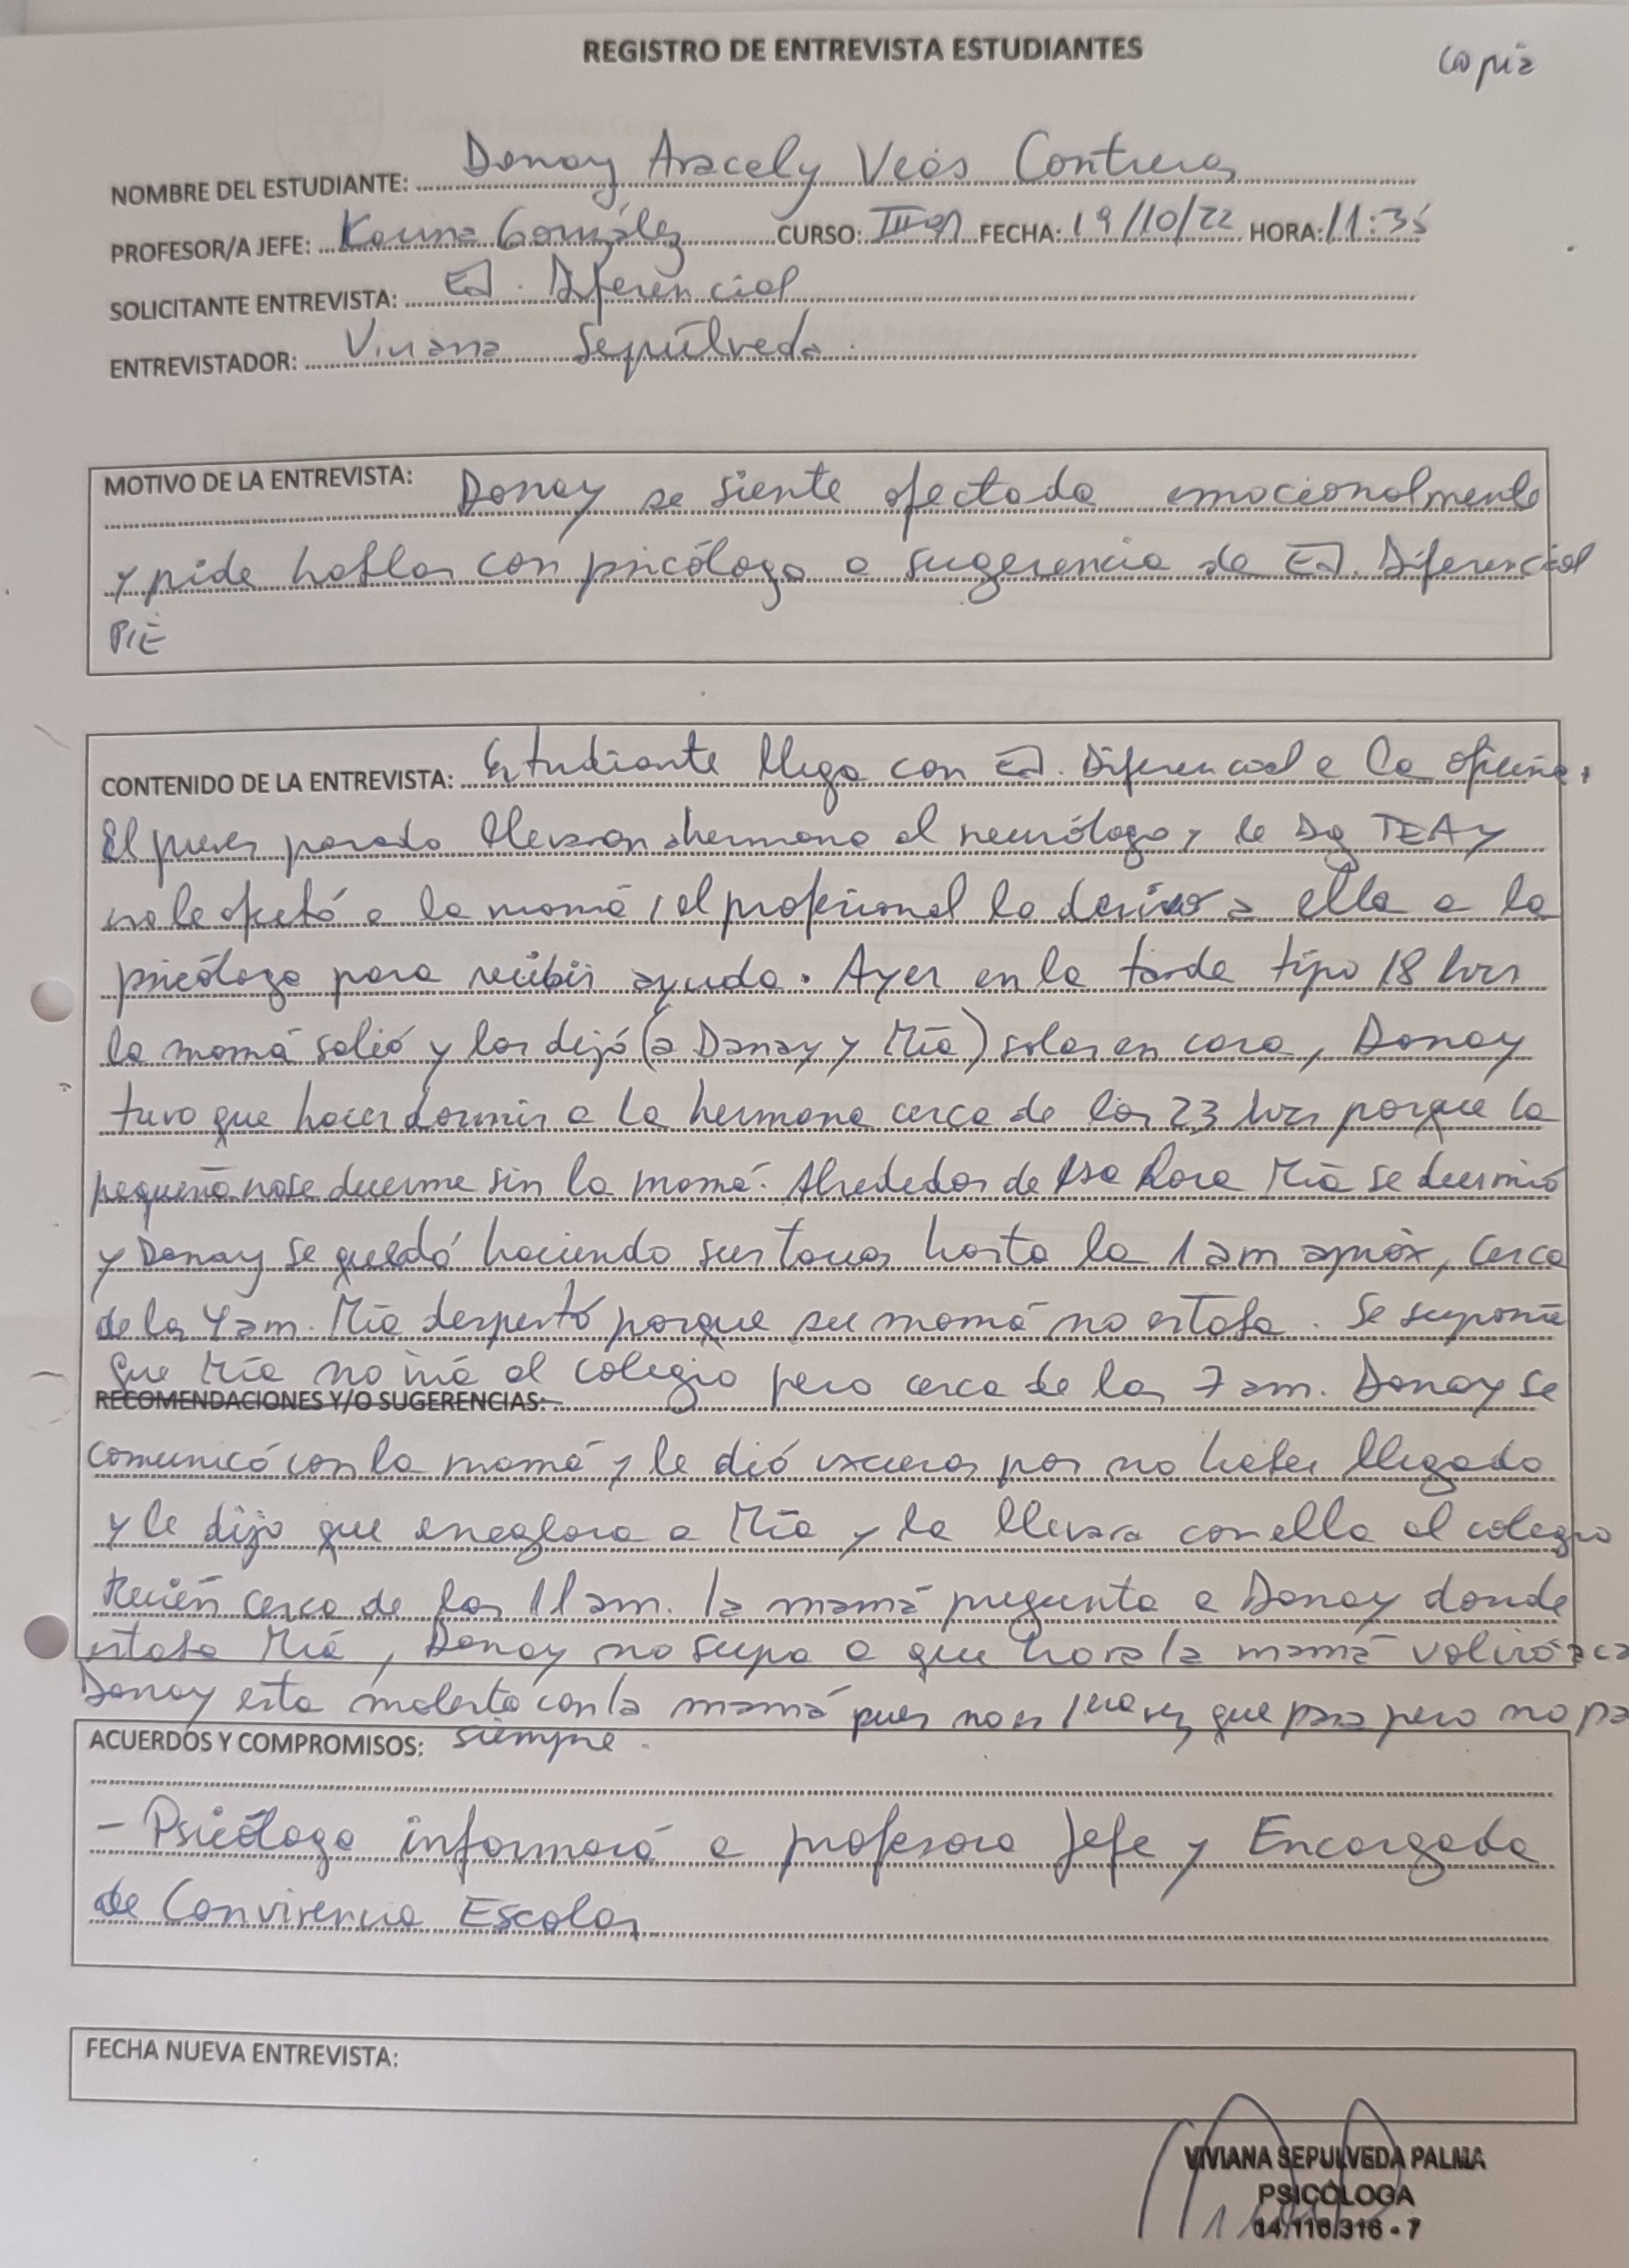 REGISTRO DE ENTREVISTA ESTUDIANTES
copia
NOMBRE DEL ESTUDIANTE: Danay Aracely Contreras
PROFESOR/A JEFE: Karina González CURSO: III°A FECHA: 19/10/22 HORA: 11:35
SOLICITANTE ENTREVISTA: Ed. Diferencial
ENTREVISTADOR: Viviana Sepúlveda.
MOTIVO DE LA ENTREVISTA: Danay se siente afectada emocionalmente
y pide hablar con psicóloga a sugerencia de Ed. Diferencial
PIE
CONTENIDO DE LA ENTREVISTA: Estudiante llega con Ed. Diferencial a la oficina.
El jueves pasado llevaron a hermana al neurólogo y le Dg TEA y
eso le afectó a la mamá, el profesional la derivó a ella a la
psicóloga para recibir ayuda. Ayer en la tarde tipo 18 hrs
la mamá salió y las dejó (a Danay y Mía) solas en casa, Danay
tuvo que hacer dormir a la hermana cerca de las 23 hrs porque la
pequeña no se duerme sin la mamá. Alrededor de esa hora Mía se durmió
y Danay se quedó haciendo sus tareas hasta la 1 am apróx, cerca
de las 4 am. Mía despertó porque su mamá no estaba. Se suponía
que Mía no iría al colegio pero cerca de las 7 am. Danay se
RECOMENDACIONES Y/O SUGERENCIAS:
comunicó con la mamá y le dió excusas por no haber llegado
y le dijo que arreglara a Mía y la llevara con ella al colegio
Recién cerca de las 11 am. la mamá pregunta a Danay donde
estaba Mía, Danay no supo a que hora la mamá volvió a ca
Danay esta molesta con la mamá pues no es 1era vez que pasa pero no pa
siempre.
ACUERDOS Y COMPROMISOS:
- Psicóloga informará a profesora Jefe y Encargada
de Convivencia Escolar
FECHA NUEVA ENTREVISTA:
VIVIANA SEPULVEDA PALMA
PSICÓLOGA
14.116.316 - 7